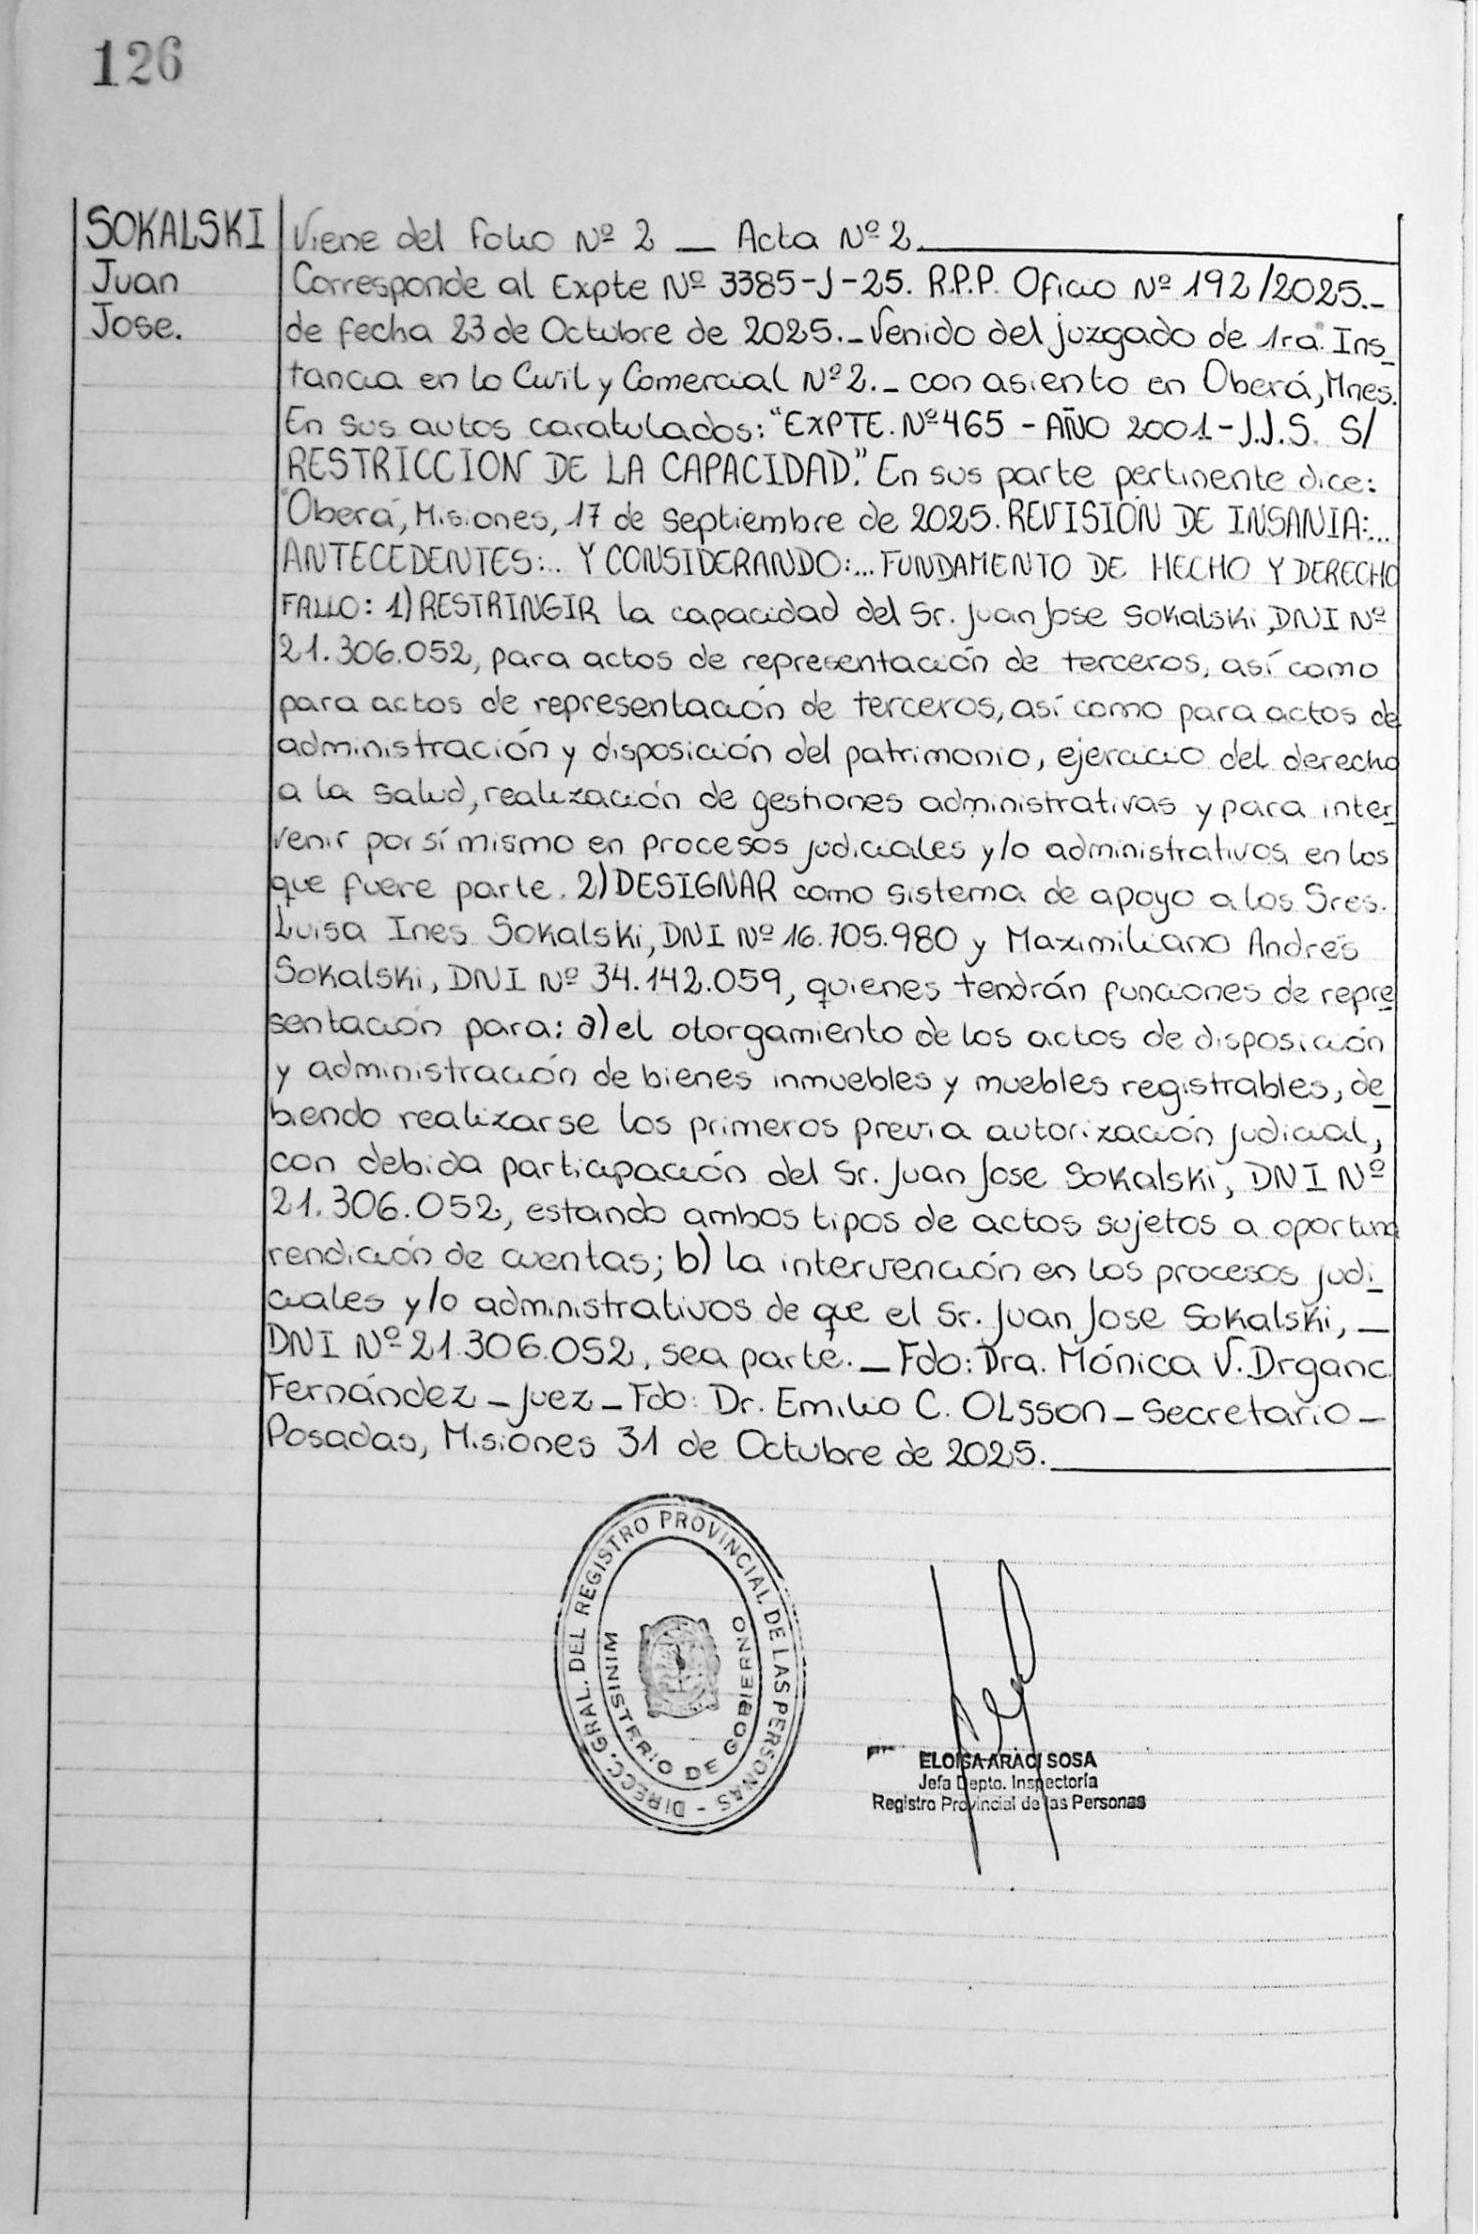 126
SOKALSKI
Juan
Jose.
Viene del folio Nº 2 _ Acta Nº 2
Corresponde al Expte Nº 3385-J-25. R.P.P. Oficio Nº 192/2025.-
de fecha 23 de Octubre de 2025._ Venido del juzgado de 1ra. Ins_
tancia en lo Civil y Comercial Nº 2._ con asiento en Oberá, Mnes.
En sus autos caratulados: "EXPTE. Nº 465 - AÑO 2001 - J.J.S. S/
RESTRICCION DE LA CAPACIDAD". En sus parte pertinente dice:
"Oberá, Misiones, 17 de septiembre de 2025. REVISIÓN DE INSANIA:...
ANTECEDENTES:.. Y CONSIDERANDO:... FUNDAMENTO DE HECHO Y DERECHO
FALLO: 1) RESTRINGIR la capacidad del Sr. Juan Jose Sokalski, DNI Nº
21.306.052, para actos de representación de terceros, así como
para actos de representación de terceros, así como para actos de
administración y disposición del patrimonio, ejercicio del derecho
a la salud, realización de gestiones administrativas y para inter_
venir por sí mismo en procesos judiciales y/o administrativos en los
que fuere parte. 2) DESIGNAR como sistema de apoyo a los Sres.
Luisa Ines Sokalski, DNI Nº 16.705.980 y Maximiliano Andrés
Sokalski, DNI Nº 34.142.059, quienes tendrán funciones de repre_
sentación para: a) el otorgamiento de los actos de disposición
y administración de bienes inmuebles y muebles registrables, de_
biendo realizarse los primeros previa autorización judicial,
con debida participación del Sr. Juan Jose Sokalski, DNI Nº
21.306.052, estando ambos tipos de actos sujetos a oportuna
rendición de cuentas; b) la intervención en los procesos judi_
ciales y/o administrativos de que el Sr. Juan Jose Sokalski, _
DNI Nº 21.306.052, sea parte. _ Fdo: Dra. Mónica V. Drganc
Fernández _ Juez _ Fdo: Dr. Emilio C. Olsson _ Secretario _
Posadas, Misiones 31 de Octubre de 2025.
DIRECC. GRAL. DEL REGISTRO PROVINCIAL DE LAS PERSONAS -
MINISTERIO DE GOBIERNO
ELOISA ARACI SOSA
Jefa Depto. Inspectoría
Registro Provincial de las Personas